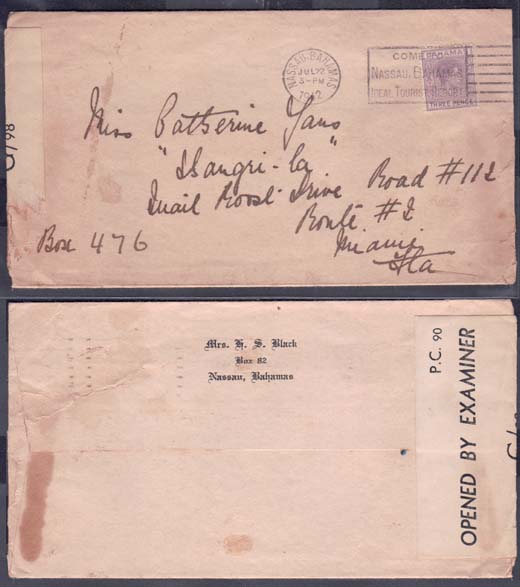 NASSAU-BAHAMAS
JUL 22
3-PM
1942
COME
NASSAU, BAHAMAS
IDEAL TOURIST RESORT
BAHAMAS
THREE PENCE
C/98
Miss Catherine Yans
"Shangri-la"
Quail Roost Drive Road #112
Route #2
Box 476
Miami
Fla
Mrs. H. S. Black
Box 82
Nassau, Bahamas
P.C. 90
OPENED BY EXAMINER